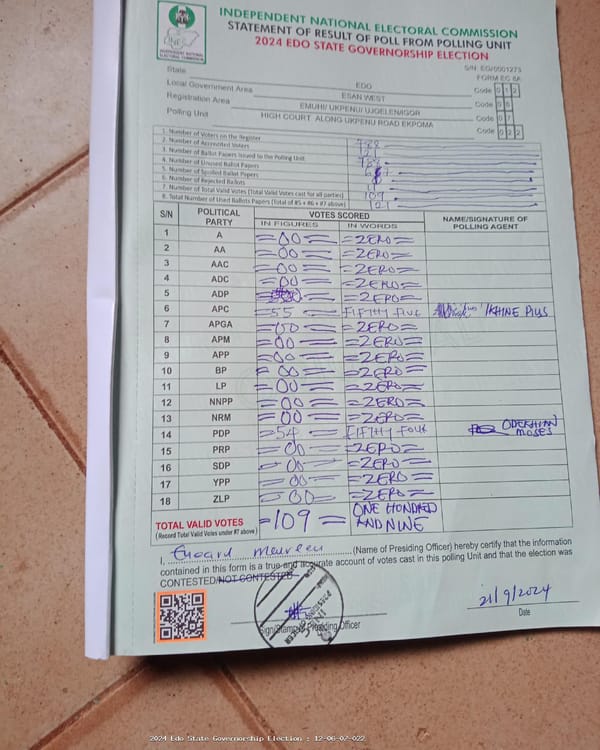 INDEPENDENT NATIONAL ELECTORAL COMMISSION
STATEMENT OF RESULT OF POLL FROM POLLING UNIT
2024 EDO STATE GOVERNORSHIP ELECTION
S/N: EG/0001273
FORM EC 8A
State EDO Code 0 1 2
Local Government Area ESAN WEST Code 0 6
Registration Area EMUHI/ UKPENU/ UJOELEN/IGOR Code 0 7
Polling Unit HIGH COURT ALONG UKPENU ROAD EKPOMA Code 0 2 2
1. Number of Voters on the Register 788
2. Number of Accredited Voters 121
3. Number of Ballot Papers Issued to the Polling Unit 788
4. Number of Unused Ballot Papers
5. Number of Spoiled Ballot Papers
6. Number of Rejected Ballots
7. Number of Total Valid Votes (Total Valid Votes cast for all parties) 109
8. Total Number of Used Ballots Papers (Total of #5 + #6 + #7 above) 121
S/N POLITICAL PARTY VOTES SCORED NAME/SIGNATURE OF POLLING AGENT
IN FIGURES IN WORDS
1 A =00= =ZERO=
2 AA =00= =ZERO=
3 AAC =00= =ZERO=
4 ADC =00= =ZERO=
5 ADP =ZERO=
6 APC =55= FIFTHY FIVE IKHINE PIUS
7 APGA =00= =ZERO=
8 APM =00= =ZERO=
9 APP =00= =ZERO=
10 BP =00= =ZERO=
11 LP =00= =ZERO=
12 NNPP =00= =ZERO=
13 NRM =00= =ZERO=
14 PDP =54= FIFTHY FOUR ODEKHIAN MOSES
15 PRP =00= =ZERO=
16 SDP =00= =ZERO=
17 YPP =00= =ZERO=
18 ZLP =00= =ZERO=
TOTAL VALID VOTES =109= ONE HONDRED AND NINE
(Record Total Valid Votes under #7 above)
I, (Name of Presiding Officer) hereby certify that the information
contained in this form is a true and accurate account of votes cast in this polling Unit and that the election was
CONTESTED/NOT CONTESTED
21/9/2024
Sign/Stamp of Presiding Officer Date
2024 Edo State Governorship Election : 12-06-07-022